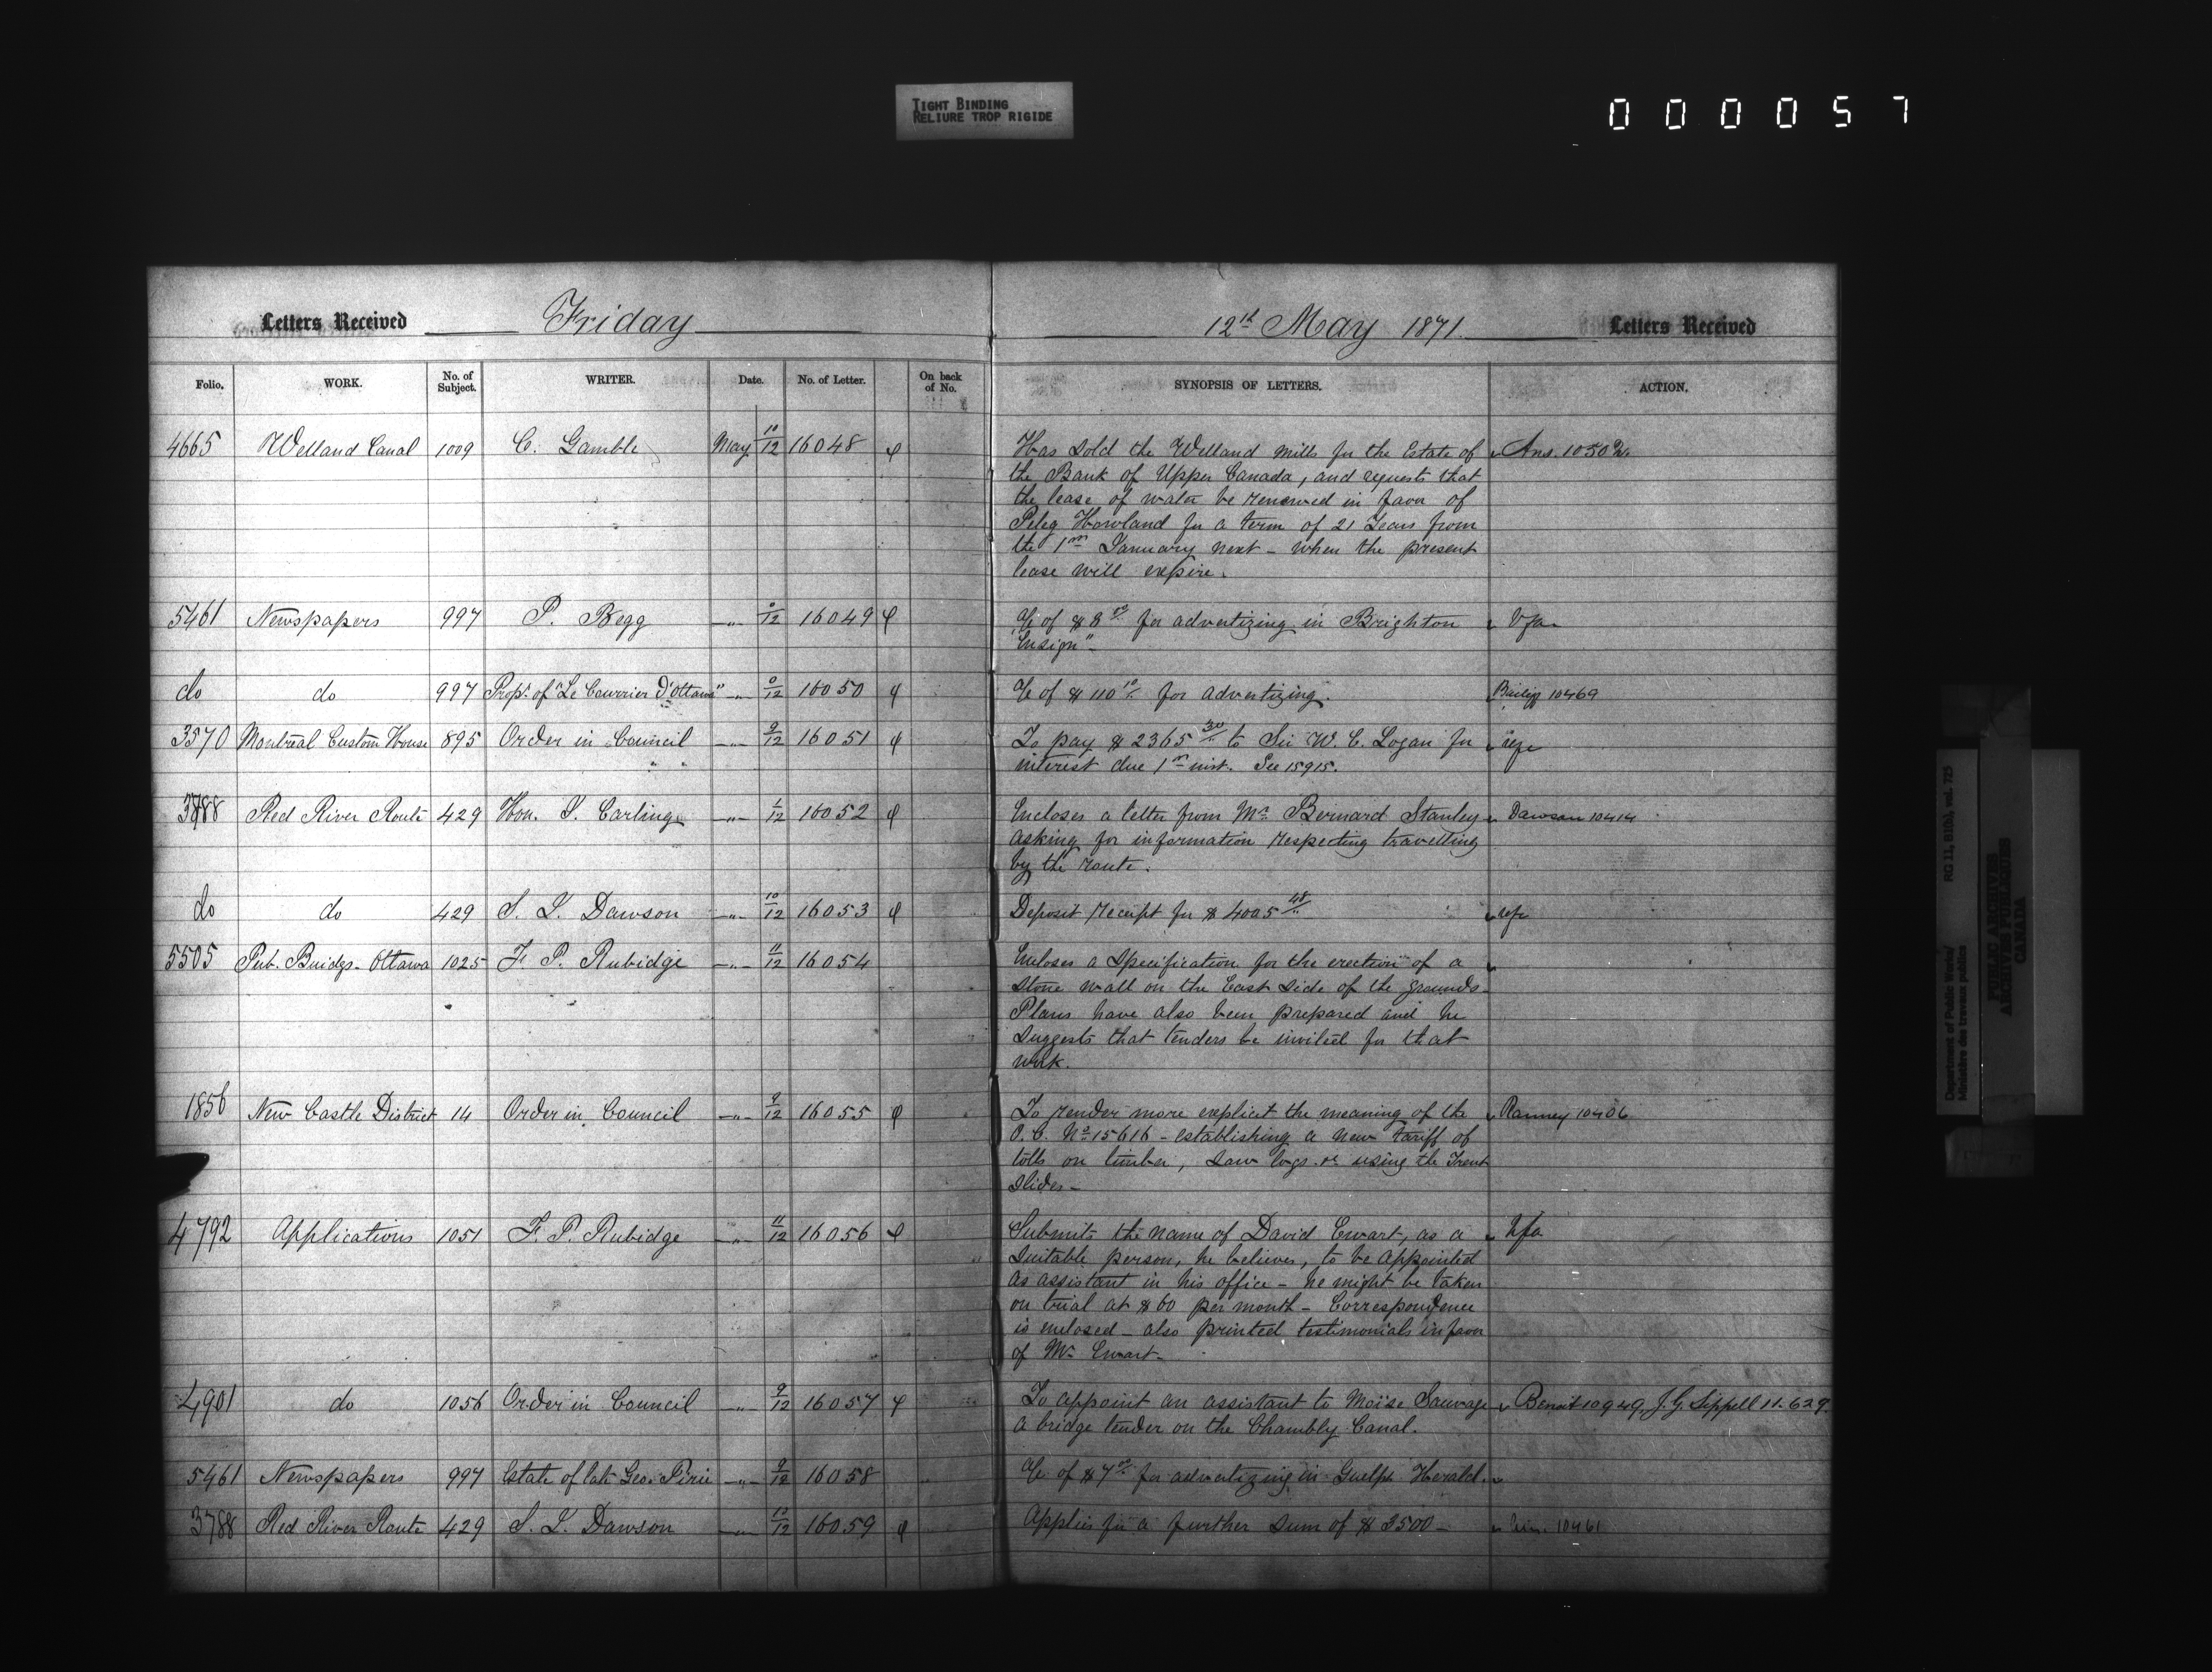 TIGHT BINDING
RELIURE TROP RIGIDE
000057
Letters Received Friday 12th May 1871. Letters Received
Folio. WORK. No. of Subject. WRITER. Date. No. of Letter. On back of No. SYNOPSIS OF LETTERS. ACTION.
4665 Welland Canal 1009 C. Gamble May 10/12 16048 φ Has sold the Welland Mills for the Estate of Ans. 10502.
the Bank of Upper Canada, and requests that
the lease of water be renewed in favor of
Peleg Howland for a term of 21 Years from
the 1st January next - when the present
lease will expire.
5461 Newspapers 997 P. Begg -"- 0/12 16049 φ A/c of $8 00 for advertizing in Brighton
"Ensign"-
do do 997 Propr. of "Le Courrier d'Ottawa" -"- 0/12 16050 φ A/c of $110 10 for advertizing. 10469
3570 Montreal Custom House 895 Order in Council -"- 9/12 16051 φ To pay $2365 30/ to Sir W. E. Logan for
interest due 1st inst. See 15915.
3788 Red River Route 429 Hon. J. Carling -"- 1/12 16052 φ Encloses a letter from Mr. Bernard Stanley Dawson 10414
asking for information respecting travelling
by the route.
do do 429 S. J. Dawson -"- 10/12 16053 φ Deposit receipt for $4005 48
5505 Pub. Buidgs. Ottawa 1025 F. P. Rubidge -"- 11/12 16054 Encloses a specification for the erection of a
stone wall on the East side of the grounds.
Plans have also been prepared and he
suggests that tenders be invited for that
work.
1856 New Castle District 14 Order in Council -"- 9/12 16055 φ To render more explicit the meaning of the Ranney 10406
O. C. No. 15616 - establishing a new tariff of
tolls on timber, saw logs &c using the Trent
Slides-
4792 Applications 1051 F. P. Rubidge -"- 11/12 16056 φ Submits the name of David Ewart, as a
suitable person, he believes, to be appointed
as assistant in his office - he might be taken
on trial at $60 per month - Correspondence
is enclosed - also printed testimonials in favor
of Mr. Ewart-
4901 do 1056 Order in Council -"- 9/12 16057 φ To appoint an assistant to Moïse Sauvage Benoit 10949, J. G. Sippell 11.629.
a bridge tender on the Chambly Canal.
5461 Newspapers 997 Estate of late Geo. Pirie -"- 9/12 16058 A/c of $7 00 for advertizing in Guelph Herald.
3788 Red River Route 429 S. J. Dawson -"- 10/12 16059 φ Applies for a further sum of $3500- 10461
Department of Public Works/ RG 11, B1(b), vol. 725
Ministère des travaux publics
PUBLIC ARCHIVES
ARCHIVES PUBLIQUES
CANADA